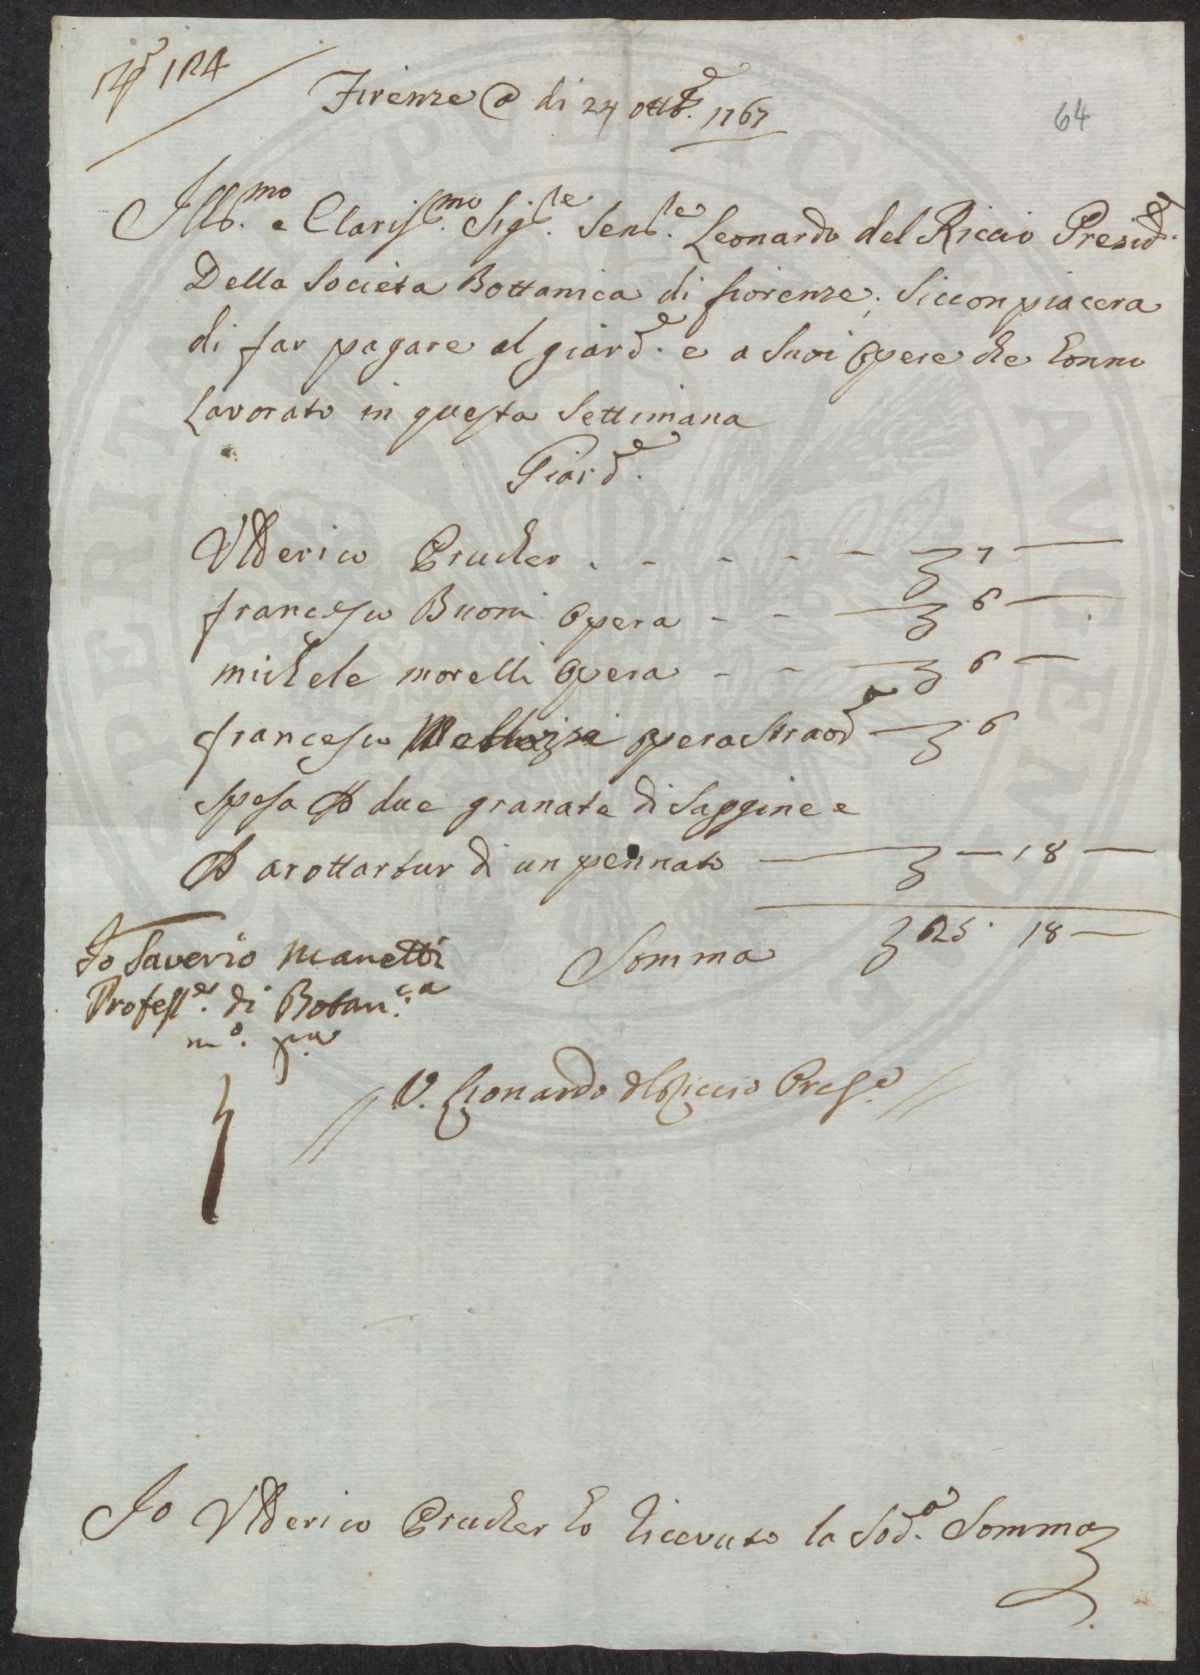 N.º 124
Firenze @ di 24 ottb.e 1767
64
Ill.mo e Clariss.mo Sig.re Sen.re Leonardo del Riccio Presid.e
Della Societa Bottanica di fiorenze; Siccon piacera
di far pagare al giard.e e a Suoi Opere che Eonno
Lavorato in questa Settimana
Giard.e
Ulderico Prucker . - - - - 7 —
francesco Buoni Opera - - — 6 —
michele morelli Opera - - — 6 —
francesco opera Straord.a — 6
spesa P due granate di Saggine e
P arottartur di un pennato — — 18 —
Somma 25. 18 —
Io Saverio Manetti
Profess.re di Botan.ca
m.o p.a
V. Lionardo del Riccio Pres.e
Io Ulderico Prucker Eo Ricevuto la Sod.a Somma